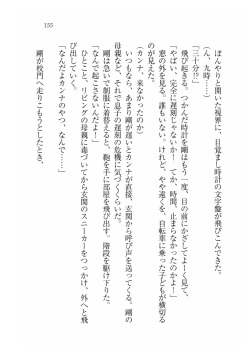 155
ぼんやりと開いた視界に、目覚まし時計の文字盤が飛びこんできた。
（ん、九時……）
「三分!?」
飛び起きる。つかんだ時計を剛はもう一度、目の前にかざしてよーく見る。
「やばい、完全に遅刻じゃないか！　てか、時間、止まらなかったのかよー」
窓の外を見る。誰もいない。けれど、やや遠くを、自転車に乗った子どもが横切る
のが見えた。
「カンナ、来なかったのか」
いつもなら、あまり剛が遅いとカンナが直接、玄関から呼び声を送ってくる。剛の
母親など、それで息子の遅刻の危機に気づくくらいだ。
「なんで起こさないんだよー！」
剛は急いで制服に着替えると、鞄を手に部屋を飛び出す。階段を駆け下りた。
ひとこと、リビングの母親に毒づいてから玄関のスニーカーをつっかけ、外へと飛
び出していく。
「なんだよカンナのやつ、なんで……」
剛が校門へ走りこもうとしたとき、